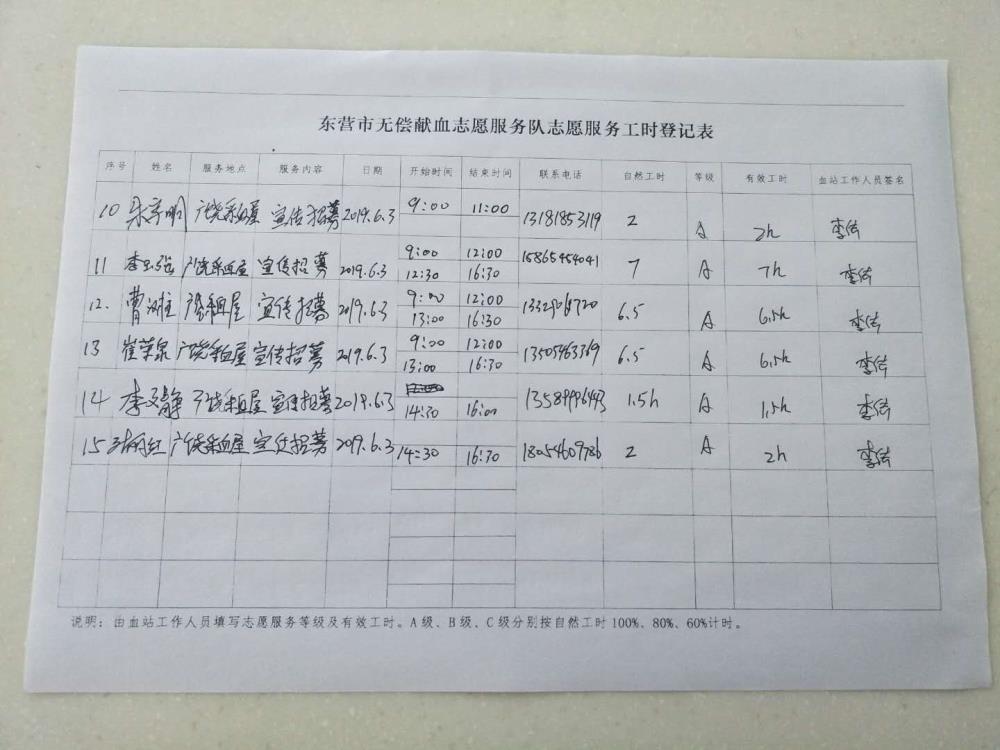 东营市无偿献血志愿服务队志愿服务工时登记表
序号 姓名 服务地点 服务内容 日期 开始时间 结束时间 联系电话 自然工时 等级 有效工时 血站工作人员签名
10 广饶采血屋 宣传招募 2019.6.3 9:00 11:00 13181853119 2 A 2h 李倩
11 李玉强 广饶采血屋 宣传招募 2019.6.3 9:00 12:00 15865454041 7 A 7h 李倩
12:30 16:30
12. 曹 广饶采血屋 宣传招募 2019.6.3 9:00 12:00 6.5 A 6.5h 李倩
13:00 16:30
13 崔荣泉 广饶采血屋 宣传招募 2019.6.3 9:00 12:00 13505463369 6.5 A 6.5h 李倩
13:00 16:30
14 李文静 广饶采血屋 宣传招募 2019.6.3 14:30 16:00 13589996443 1.5h A 1.5h 李倩
15 广饶采血屋 宣传招募 2019.6.3 14:30 16:30 18054609786 2 A 2h 李倩
说明：由血站工作人员填写志愿服务等级及有效工时。A级、B级、C级分别按自然工时100%、80%、60%计时。